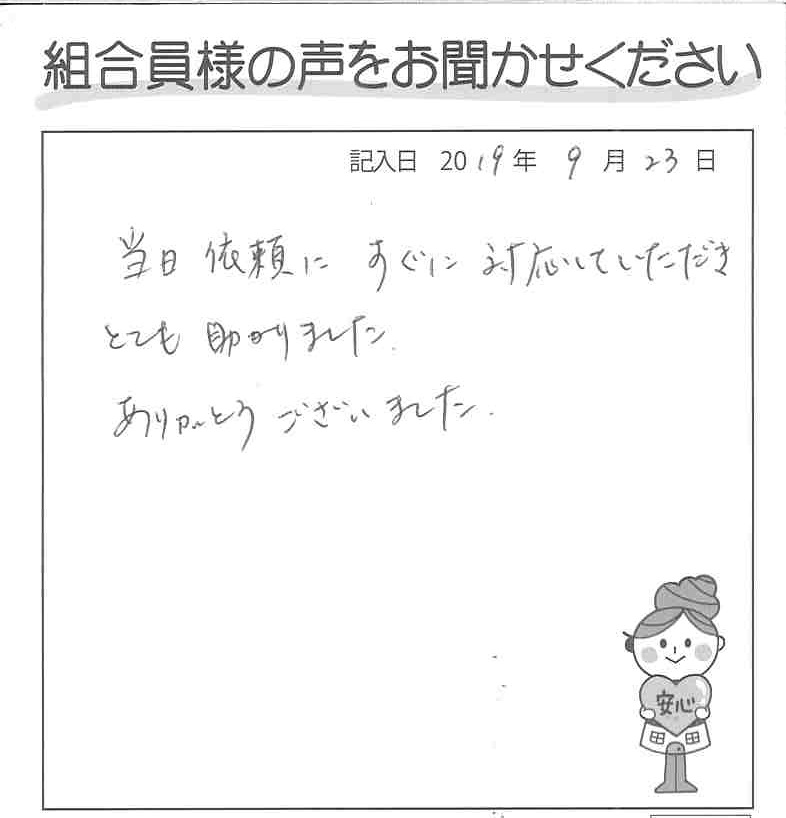 組合員様の声をお聞かせください
記入日 2019年 9月23日
当日 依頼に すぐに 対応していただき
とても 助かりました.
ありがとう ございました.
安心